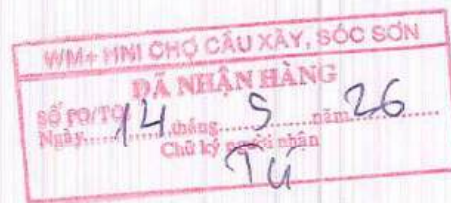 WM+ HNI CHỢ CẦU XÂY, SÓC SƠN
ĐÃ NHẬN HÀNG
SỐ PO/TO
Ngày 14 tháng 5 năm 26
Chữ ký người nhận
Tú